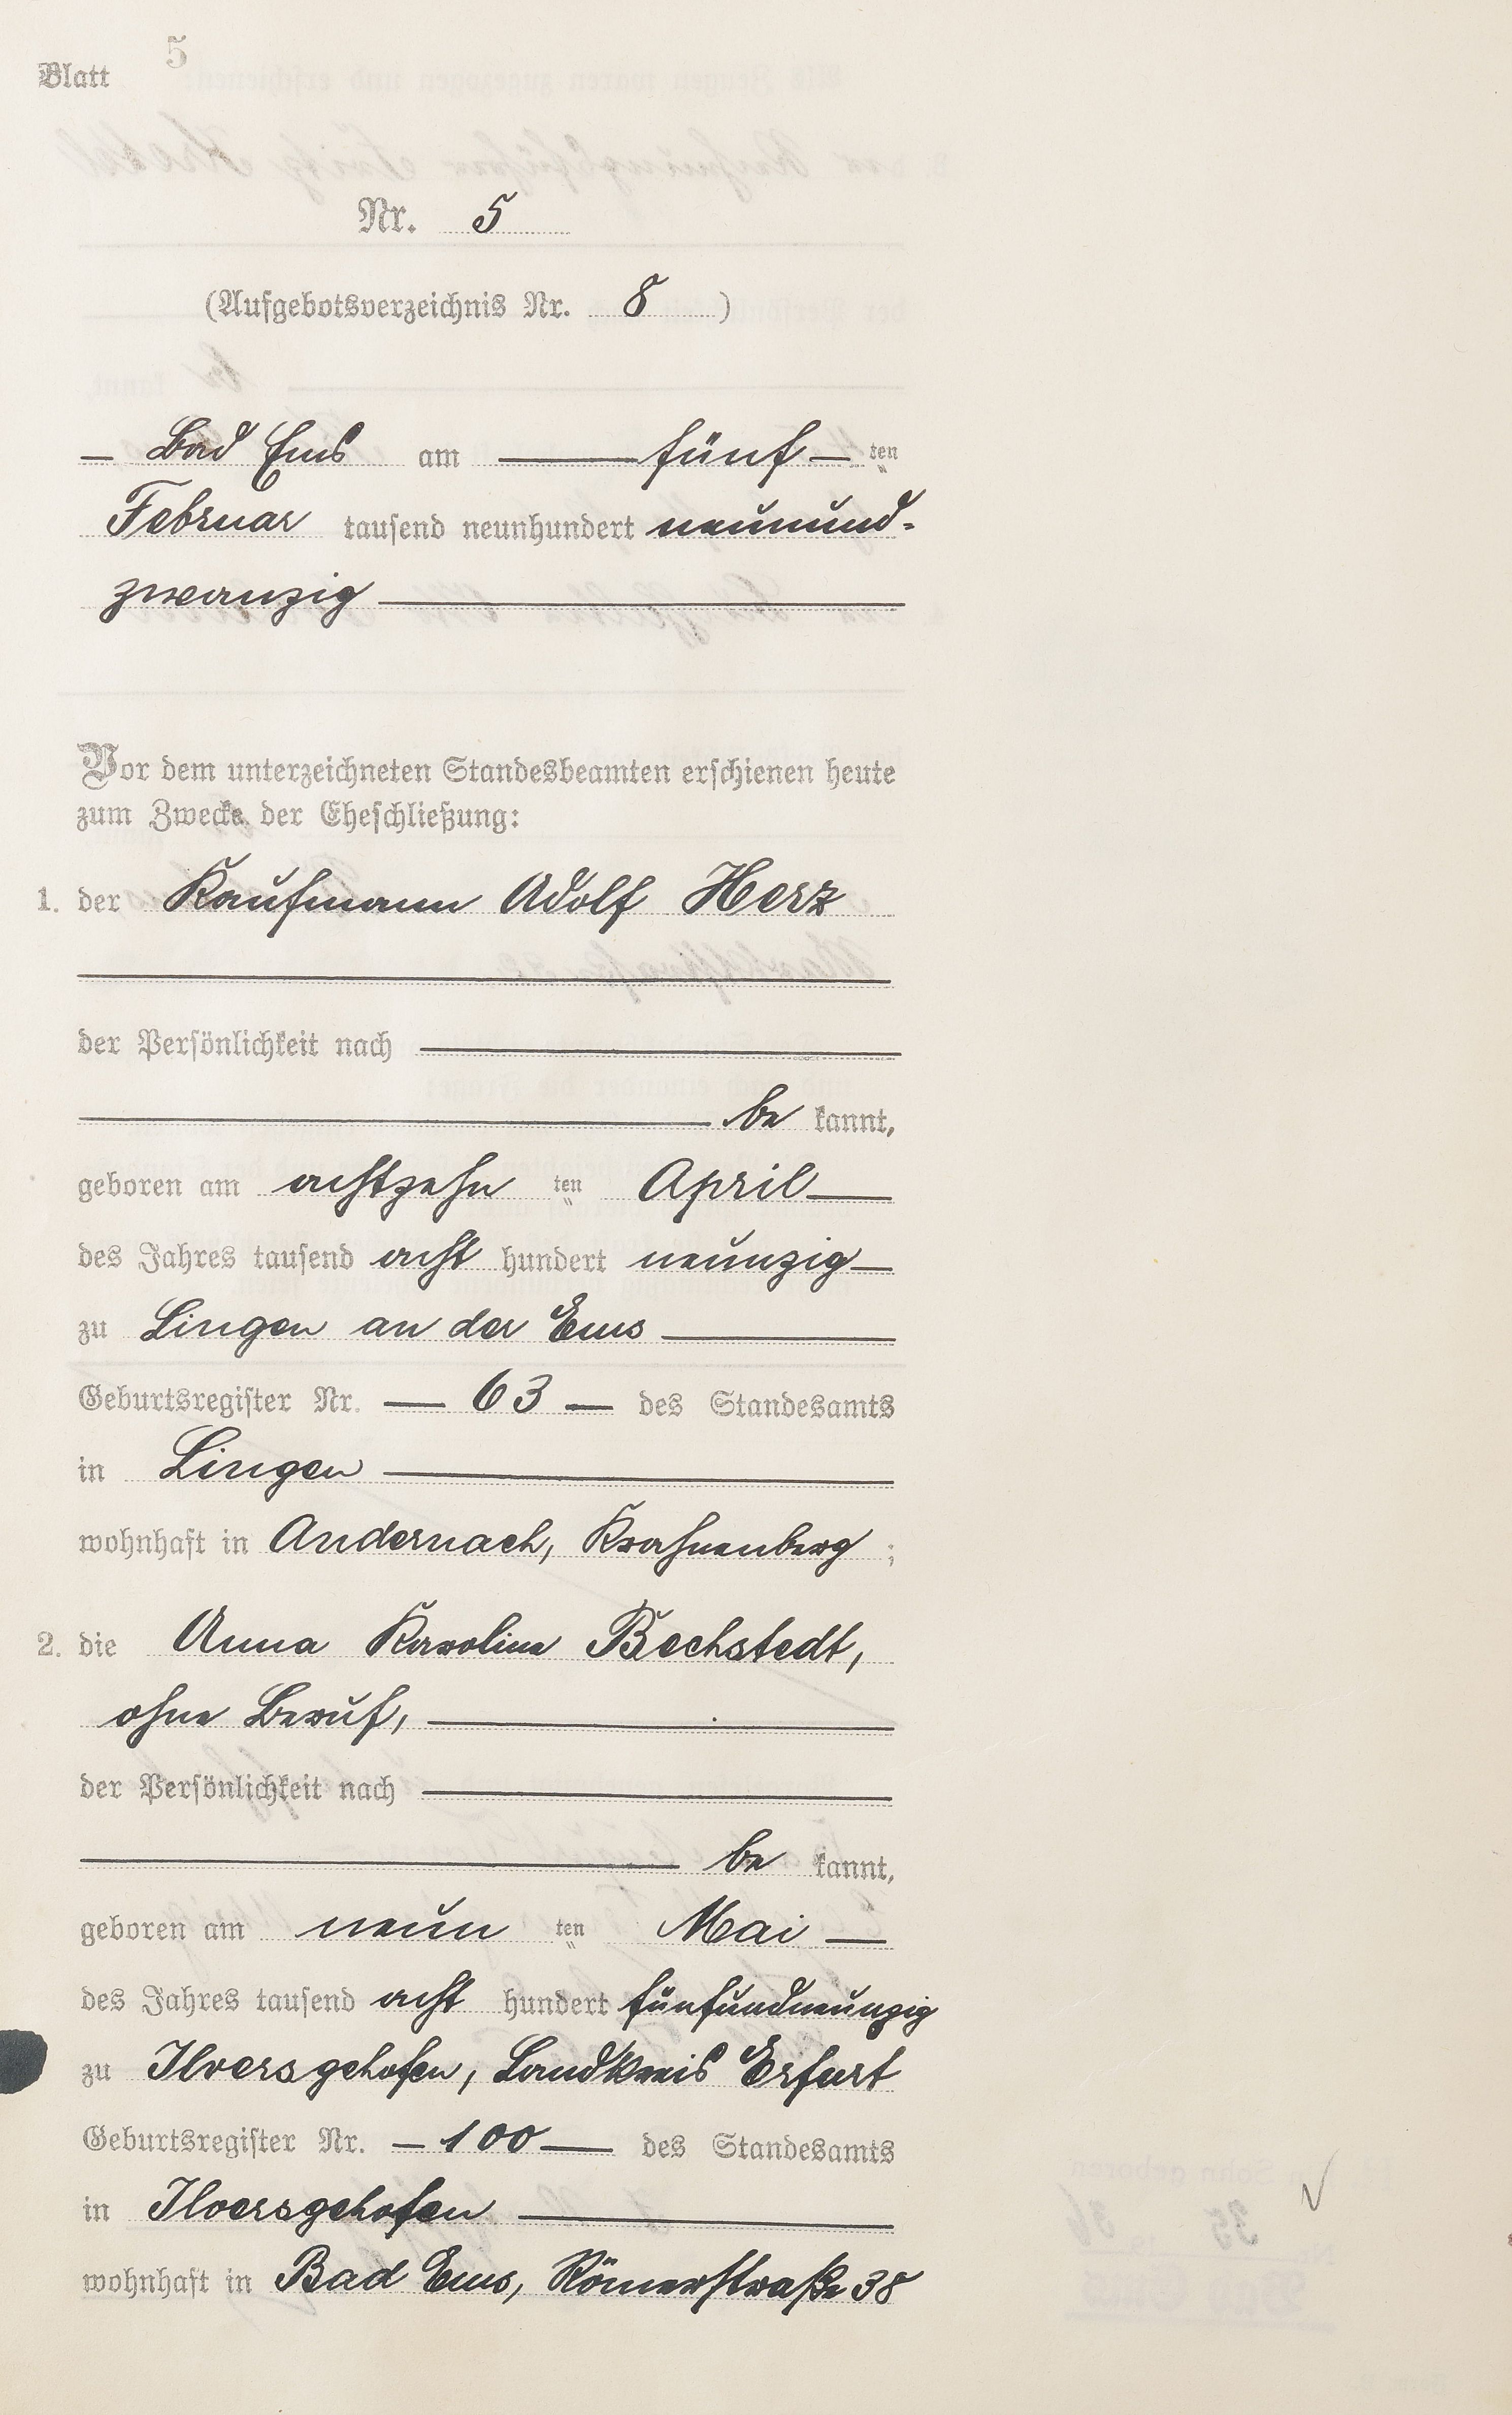 Blatt 5
Nr. 5
(Aufgebotsverzeichnis Nr. 8 )
— Bad Ems am — fünf — ten
Februar tausend neunhundert neunund-
zwanzig —
Vor dem unterzeichneten Standesbeamten erschienen heute
zum Zwecke der Eheschließung:
1. der Kaufmann Adolf Herz
der Persönlichkeit nach —
— be kannt,
geboren am achtzehn ten April —
des Jahres tausend acht hundert neunzig —
zu Lingen an der Ems —
Geburtsregister Nr. — 63 — des Standesamts
in Lingen —
wohnhaft in Andernach, Krahnenberg ;
2. die Anna Karoline Bechstedt,
ohne Beruf, —
der Persönlichkeit nach —
— be kannt,
geboren am neun ten Mai —
des Jahres tausend acht hundert fünfundneunzig
zu Ilversgehofen, Landkreis Erfurt
Geburtsregister Nr. — 100 — des Standesamts
in Ilversgehofen —
wohnhaft in Bad Ems, Römerstraße 38